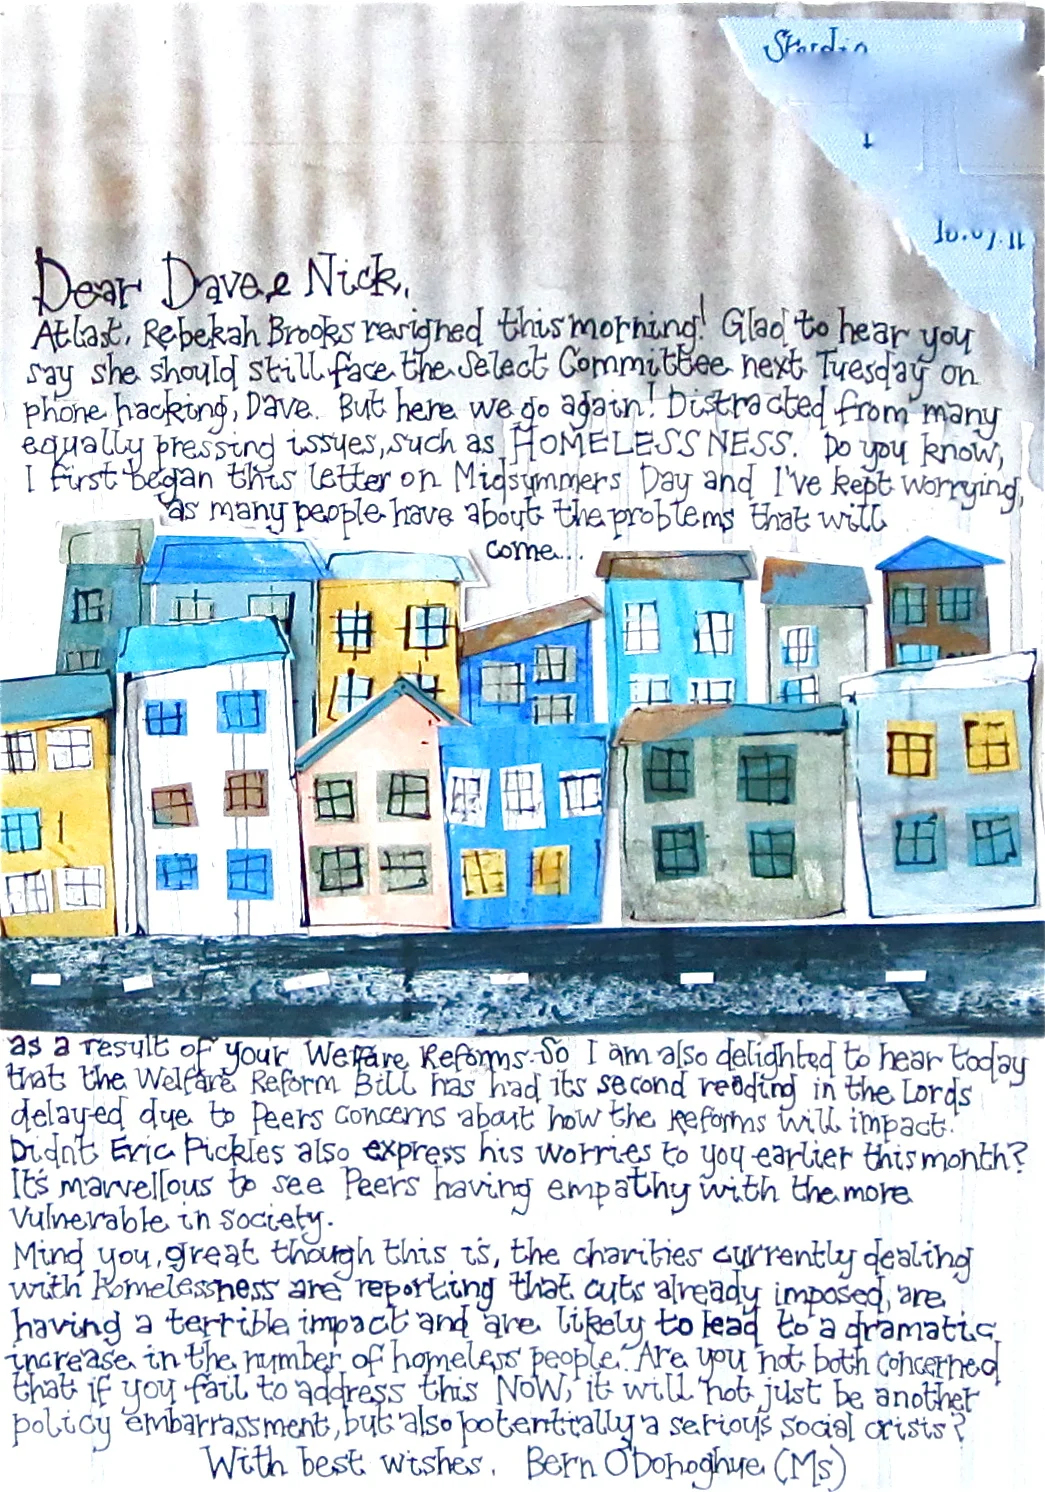 Studio
Dear Dave & Nick,
At last, Rebekah Brooks resigned this morning! Glad to hear you
say she should still face the Select Committee next Tuesday on
phone hacking, Dave. But here we go again! Distracted from many
equally pressing issues, such as HOMELESSNESS. Do you know,
I first began this letter on Midsummers Day and I've kept worrying,
as many people have about the problems that will
come...
as a result of your Welfare Reforms. So I am also delighted to hear today
that the Welfare Reform Bill has had its second reading in the Lords
delayed due to Peers concerns about how the Reforms will impact.
Didn't Eric Pickles also express his worries to you earlier this month?
It's marvellous to see Peers having empathy with the more
vulnerable in society.
Mind you, great though this is, the charities currently dealing
with homelessness are reporting that cuts already imposed, are
having a terrible impact and are likely to lead to a dramatic
increase in the number of homeless people. Are you not both concerned
that if you fail to address this NOW, it will not just be another
policy embarrassment, but also potentially a serious social crisis?
With best wishes, Bern O'Donoghue (Ms)